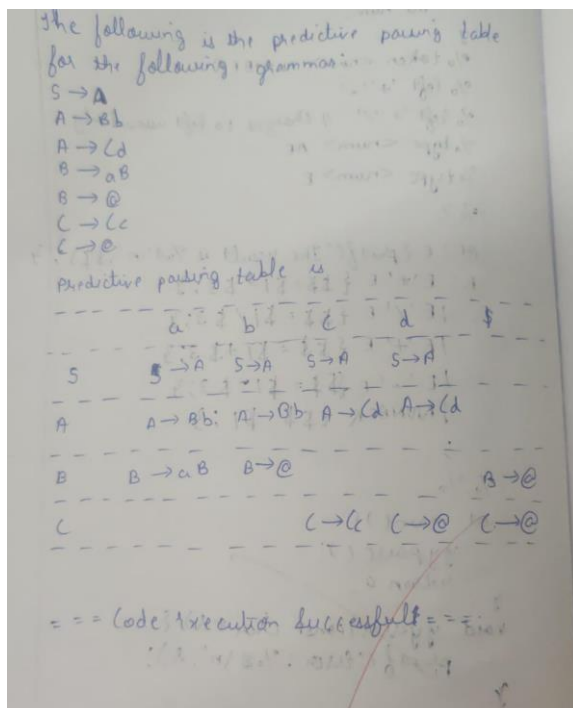 The following is the predictive parsing table
for the following grammar:
S → A
A → Bb
A → Cd
B → aB
B → @
C → Cc
C → @
predictive parsing table is
a b c d $
S S → A S → A S → A S → A
A A → Bb A → Bb A → Cd A → Cd
B B → aB B → @ B → @
C C → Cc C → @ C → @
= = = Code Execution Successful = = =